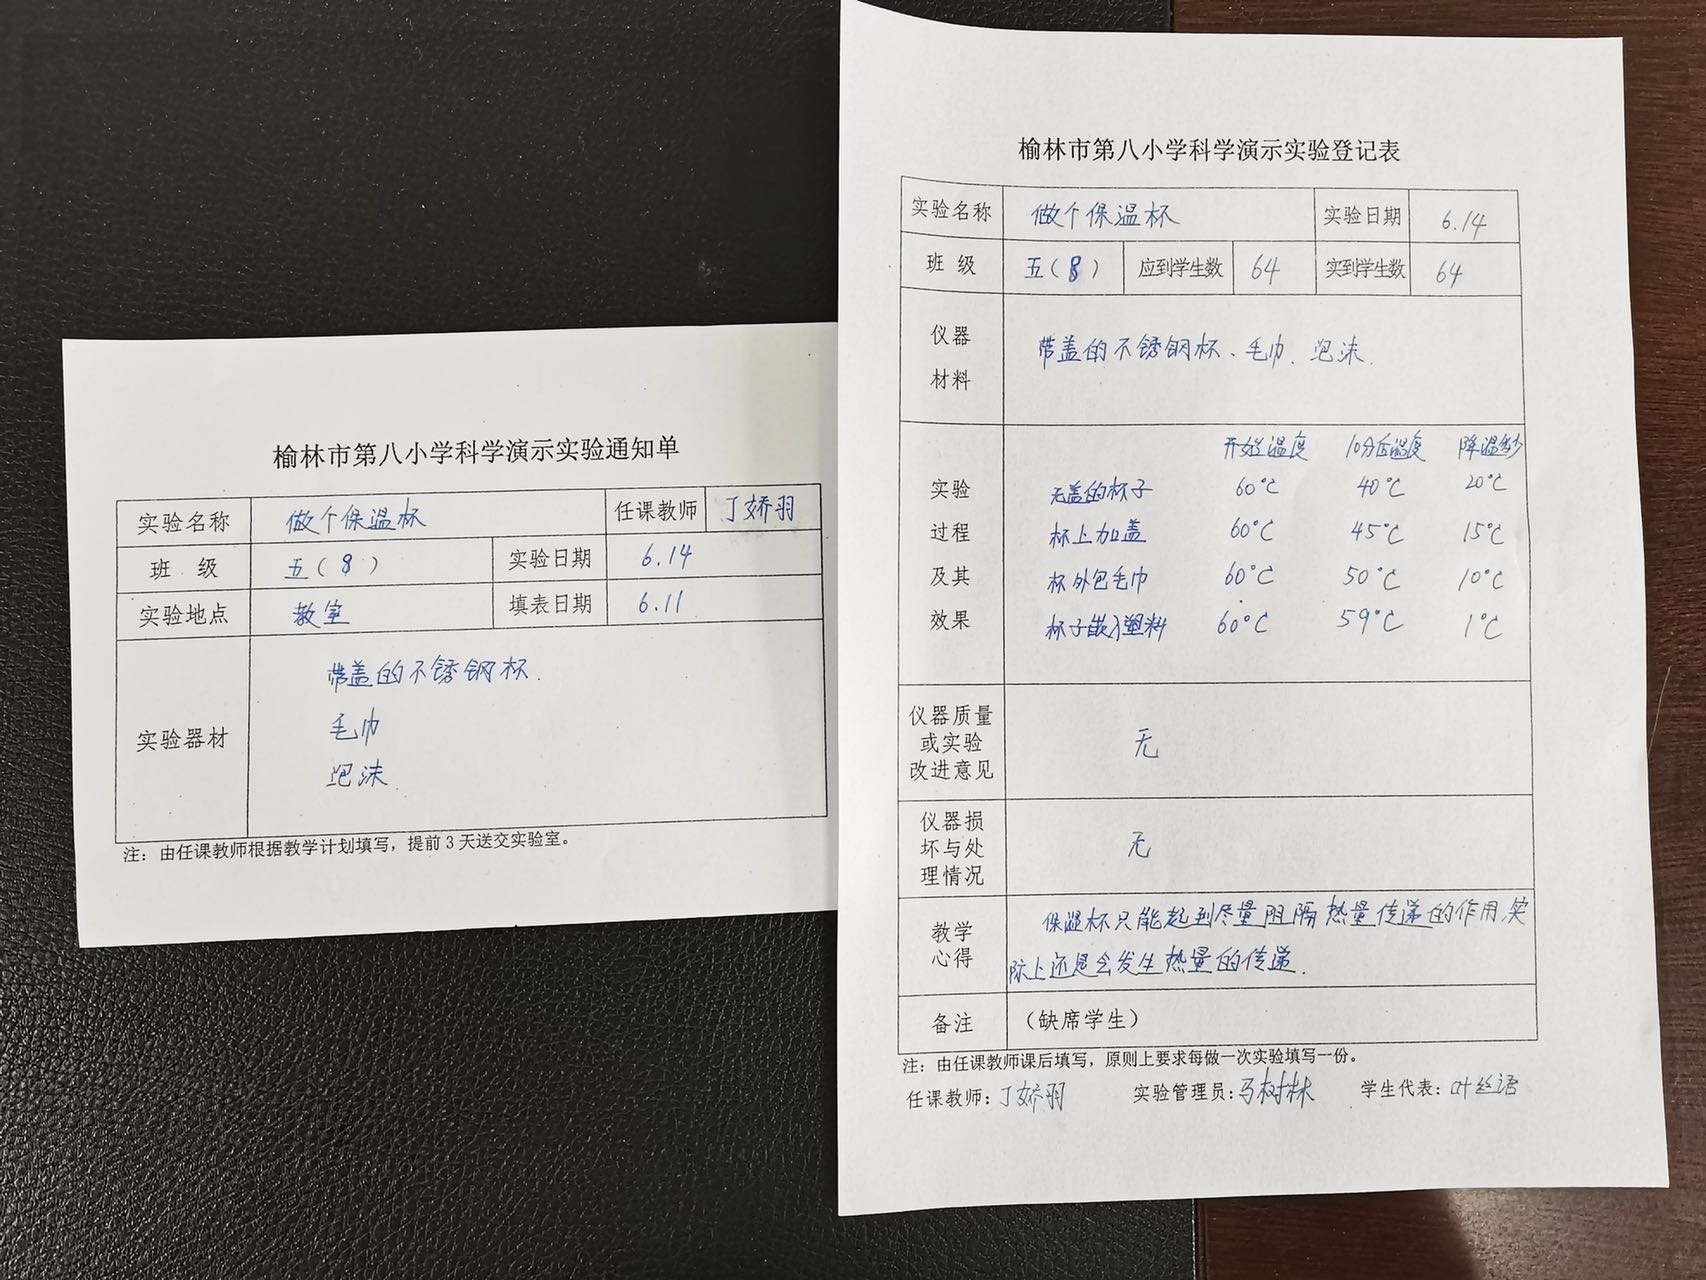 榆林市第八小学科学演示实验通知单
实验名称 做个保温杯 任课教师 丁娇羽
班 级 五(8) 实验日期 6.14
实验地点 教室 填表日期 6.11
实验器材 带盖的不锈钢杯.
毛巾
泡沫.
注：由任课教师根据教学计划填写，提前3天送交实验室。
榆林市第八小学科学演示实验登记表
实验名称 做个保温杯 实验日期 6.14
班 级 五(8) 应到学生数 64 实到学生数 64
仪器
材料
带盖的不锈钢杯、毛巾、泡沫.
实验
过程
及其
效果
开始温度 10分后温度 降温多少
无盖的杯子 60℃ 40℃ 20℃
杯上加盖 60℃ 45℃ 15℃
杯外包毛巾 60℃ 50℃ 10℃
杯子嵌入塑料 60℃ 59℃ 1℃
仪器质量
或实验
改进意见
无
仪器损
坏与处
理情况
无
教学
心得
保温杯只能起到尽量阻隔热量传递的作用,实
际上还是会发生热量的传递.
备注 （缺席学生）
注：由任课教师课后填写，原则上要求每做一次实验填写一份。
任课教师：丁娇羽 实验管理员：马树林 学生代表：叶丝语